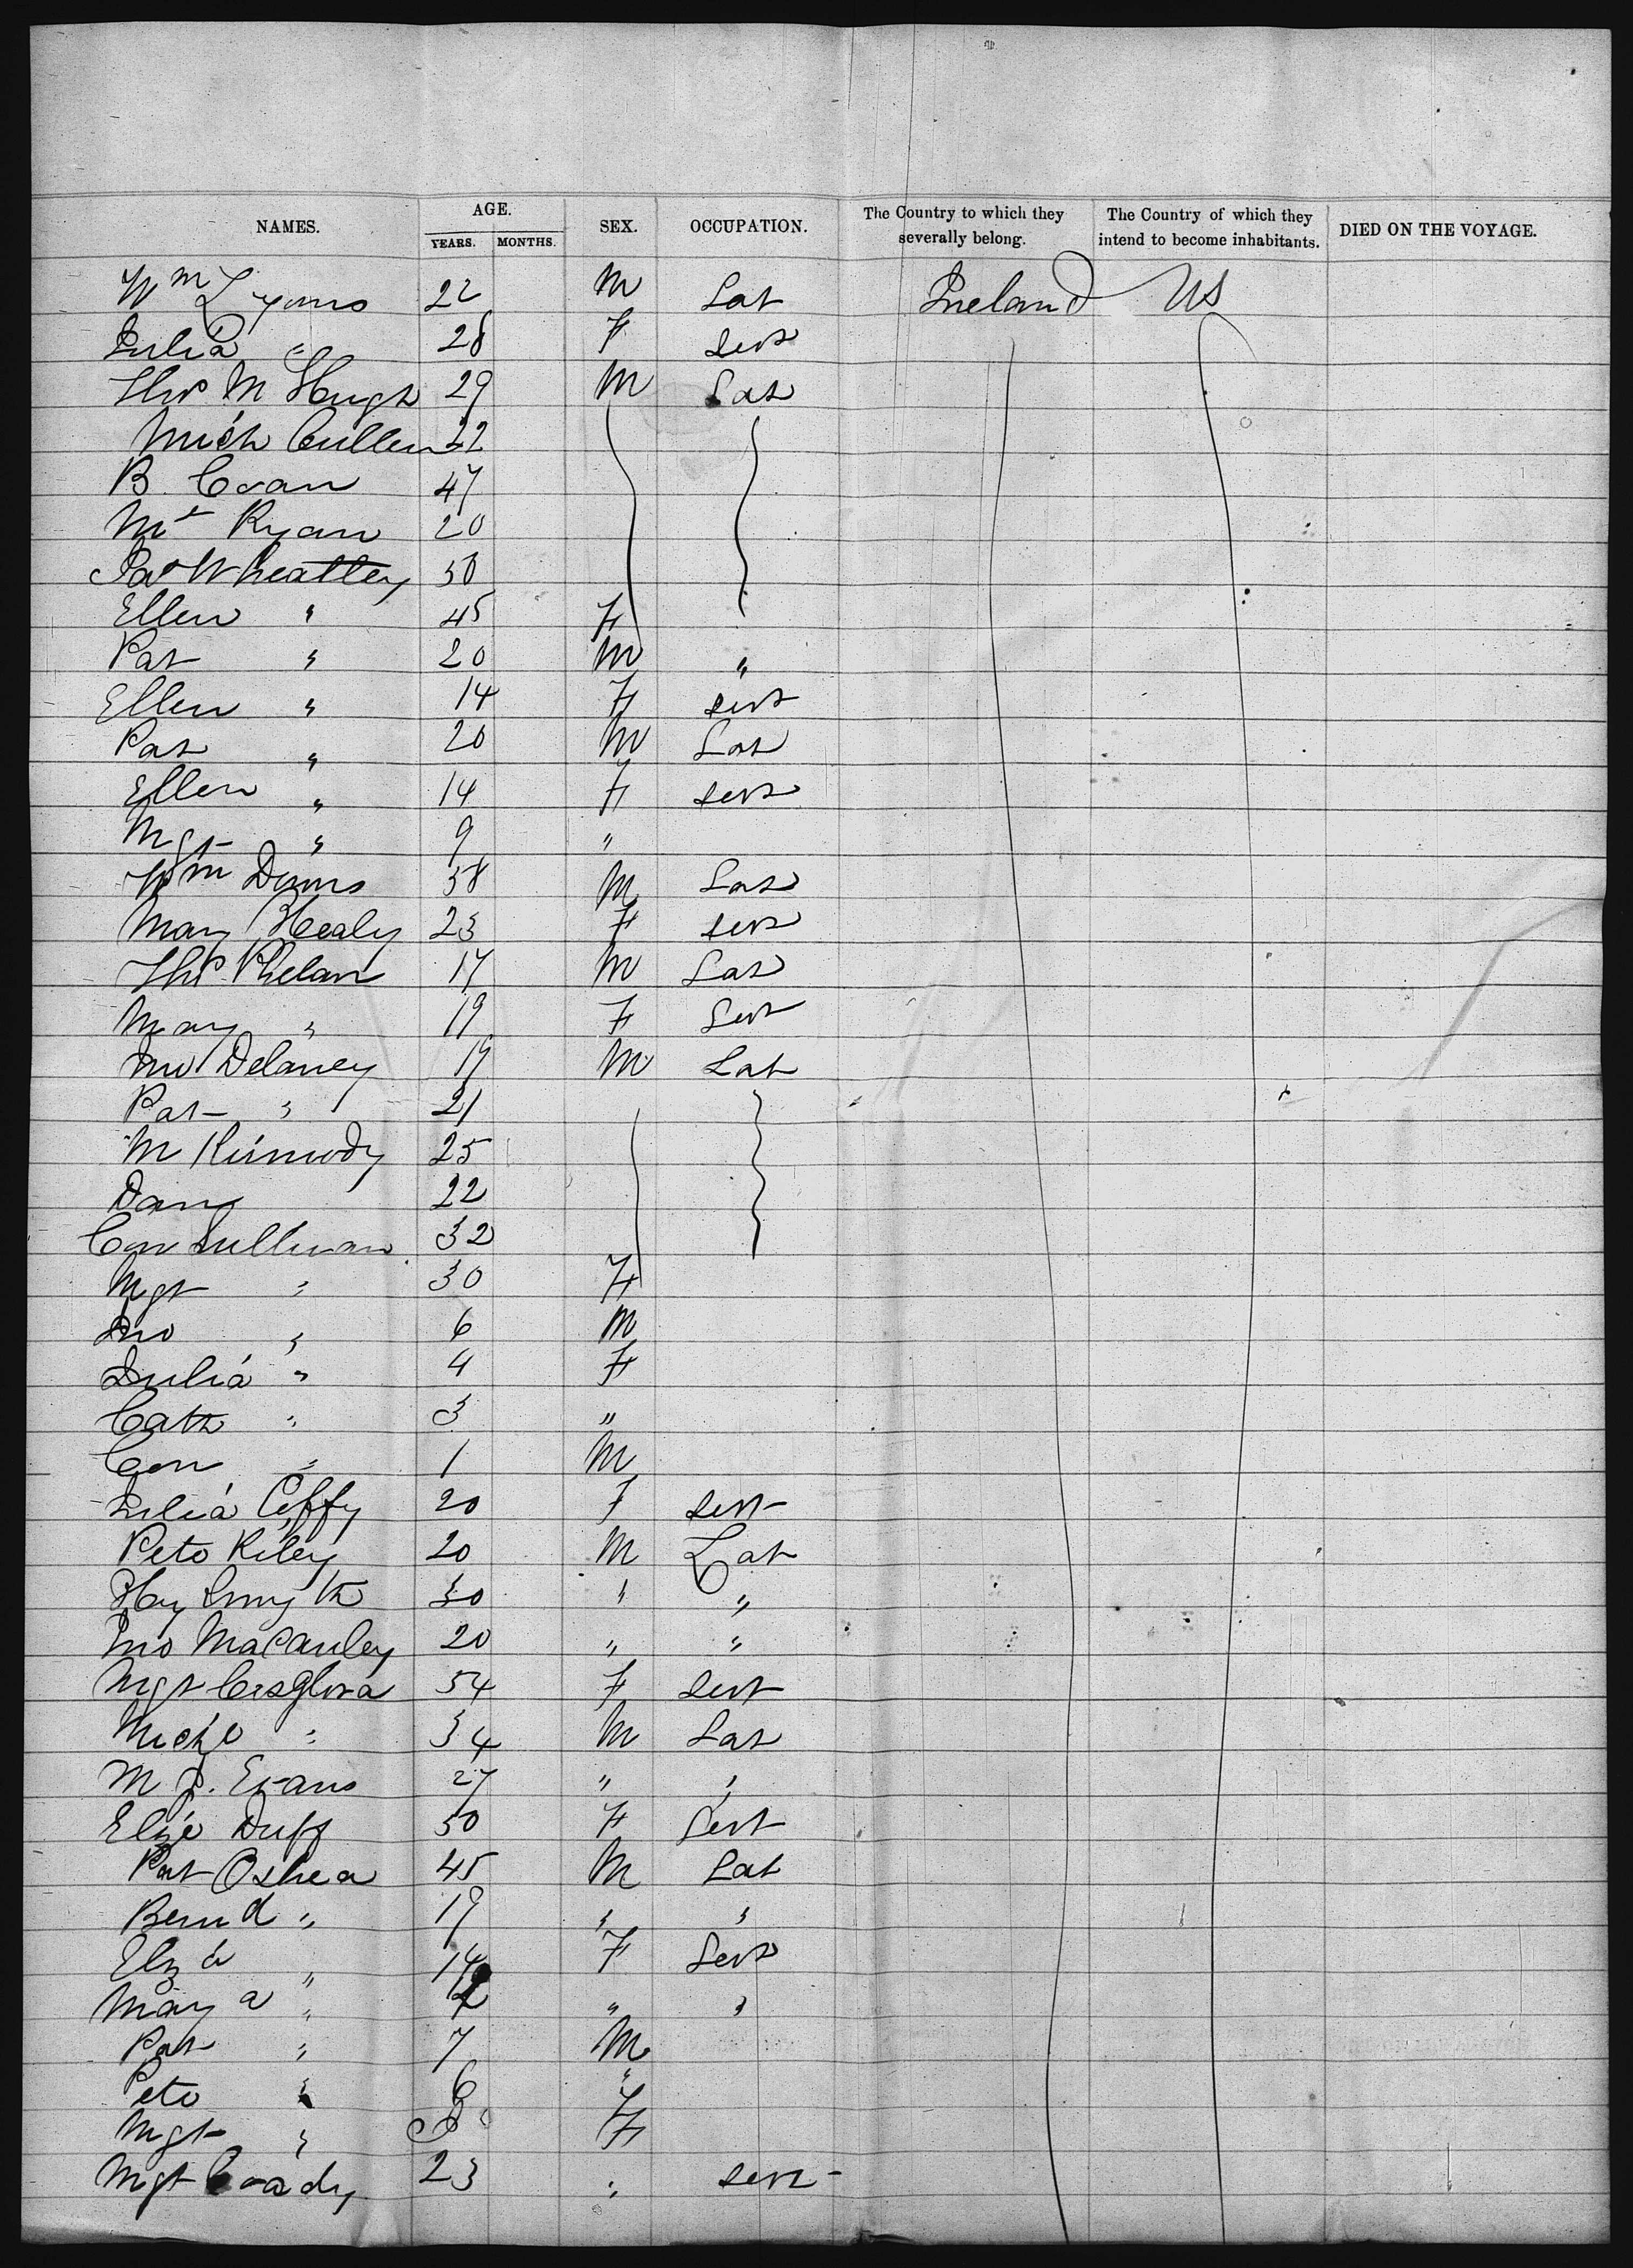 NAMES. AGE. YEARS. MONTHS. SEX. OCCUPATION. The Country to which they severally belong. The Country of which they intend to become inhabitants. DIED ON THE VOYAGE.
Wm Lyons 22 M Lab Ireland US
Julia " 28 F Serv
Thos McHugh 29 M Lab
Mich Cullen 22
B. 47
Mt Ryan 20
Wheatley 50
Ellen " 45 F
Pat " 20 M "
Ellen " 14 F Serv
Pat " 20 M Lab
Ellen " 14 F Serv
Mgt " 9 "
Wm 38 M Lab
Mary Healy 23 F Serv
Thos Phelan 17 M Lab
Mary " 19 F Serv
Jno Delaney 19 M Lab
Pat " 21
M Kennedy 25
Dan 22
Con Sullivan 32
Mgt " 30 F
Jno " 6 M
Julia " 4 F
Cath " 3 "
Con " 1 M
Julia 20 F Serv
Peto Riley 20 M Lab
Hy Smyth 30 " "
Jno Macauley 20 " "
Mgt 34 F Serv
Michl " 34 M Lab
M J. Evans 27 " "
Duff 50 F Serv
Pat Oshea 45 M Lab
Bernd " 19 " "
Elza " 14 F Serv
Mary a " " "
Pat " 7 M
Peto " 6 "
Mgt " F
Mgt 23 " Serv